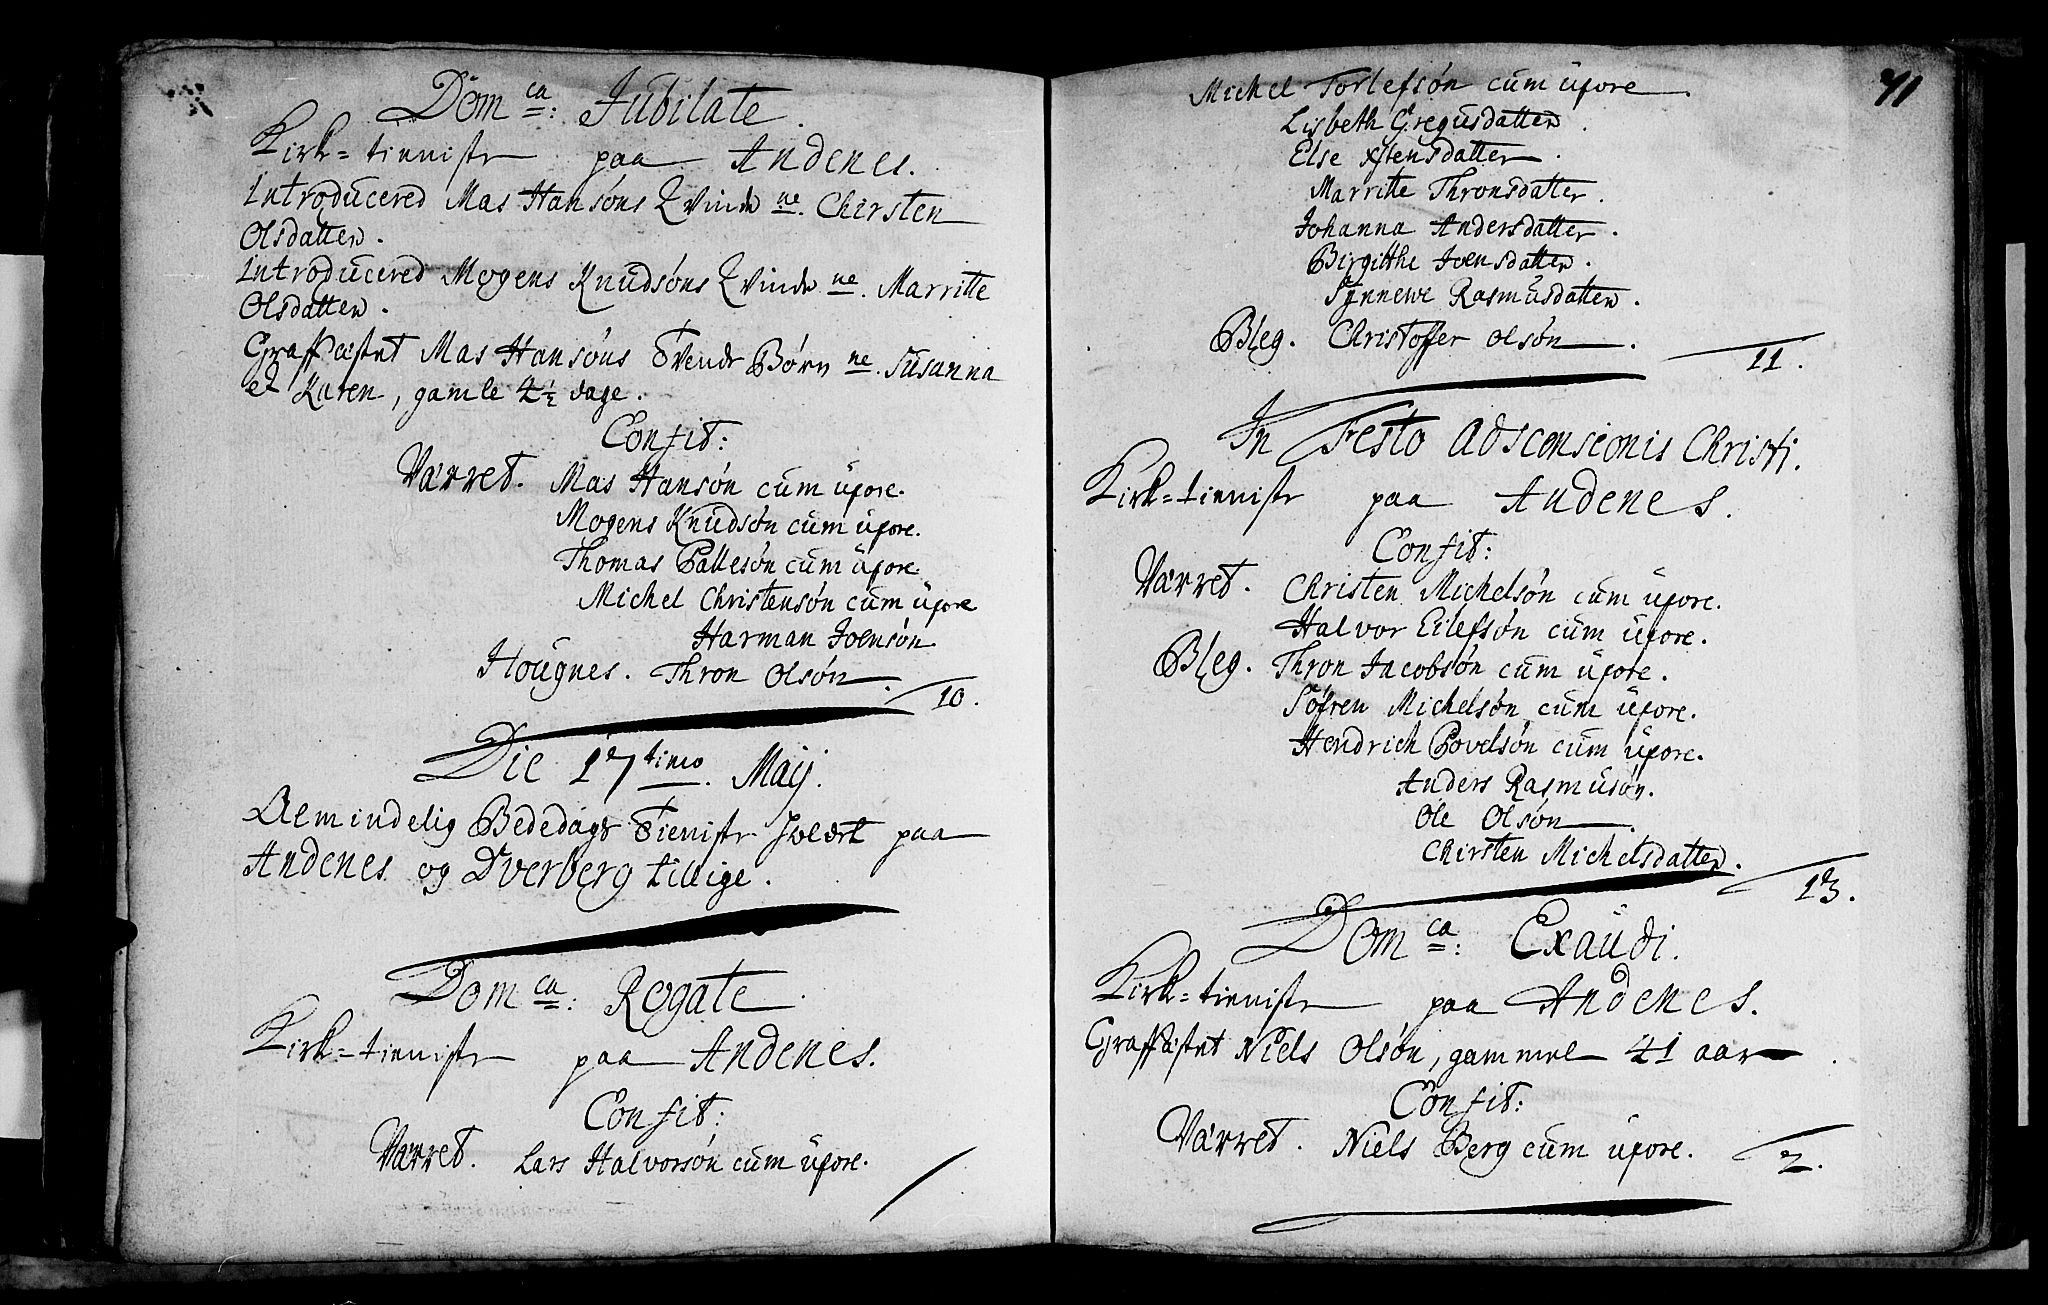 Dom ca: Jubilate.
Kirk=tieniste paa Andenes.
Introducered Mas Hansóns Qvinde ne. Chirsten
Olsdatter.
Introducered Mogens Knudsóns Qvinde ne. Marritte
Olsdatter.
Graffæstet Mas Hansóns Tvende Bórn ne. Susanna
et Karen, gamle 4½ dage.
Confit:
Værret. Mas Hansón cum uxore.
Mogens Knudsón cum uxore.
Thomas Pallesón cum uxore.
Michel Christensón cum uxore
Harman Joensón.
Hougnes. Thron Olsón.
10.
Die 17timo. Maij.
Almindelig Bededags Tieniste holdt paa
Andenes og Dverberg tillige.
Dom ca: Rogate.
Kirk=tieniste paa Andenes.
Confit:
Værret. Lars Halvorsón cum uxore.
71
Michel Torlefsón cum uxore.
Lisbeth Gregusdatter.
Else Xstensdatter.
Marritte Thronsdatter.
Johanna Andersdatter.
Birgitthe Joensdatter.
Synnewe Rasmusdatter.
Bleg. Christoffer Olsón.
11.
In Festo Adscensionis Christi.
Kirk=tieniste paa Andenes.
Confit:
Værret. Christen Michelsón cum uxore.
Halvor Eilefsón cum uxore.
Bleg. Thron Jacobsón cum uxore.
Sófren Michelsón cum uxore.
Hendrich Povelsón cum uxore.
Anders Rasmusón.
Ole Olsón.
Chirsten Michelsdatter.
13.
Dom ca: Exaudi.
Kirk=tieniste paa Andenes.
Graffæstet Niels Olsón, gammel 41 aar.
Confit:
Værret. Niels Berg cum uxore.
2.